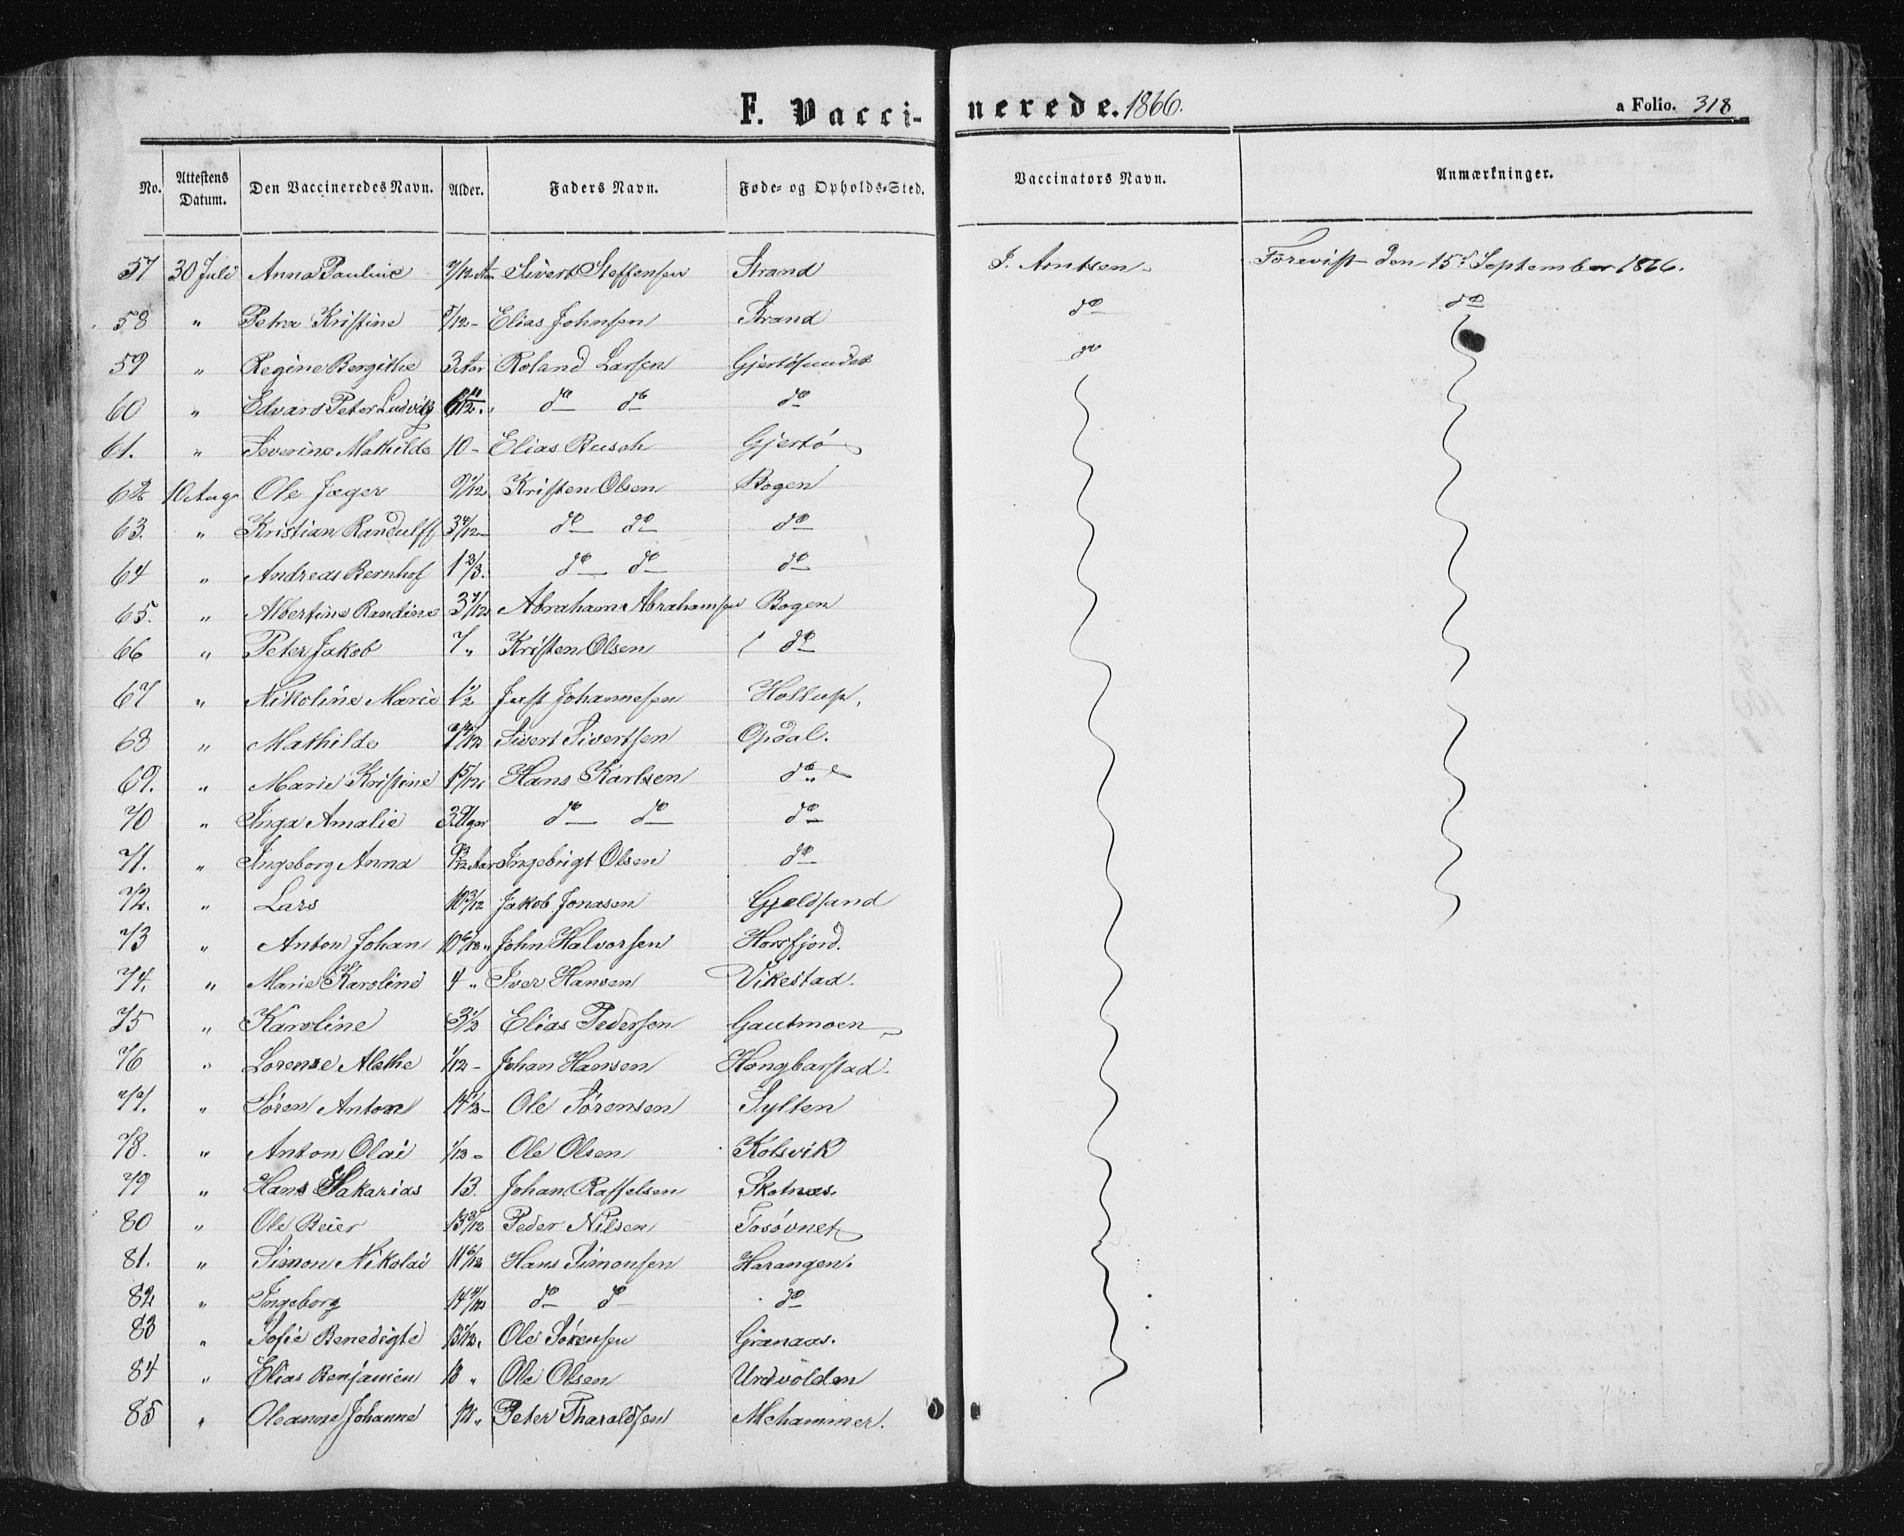 F. Vaccinerede. 1866. a Folio. 318
No. Attestens Datum. Den Vaccineredes Navn. Alder. Faders Navn. Føde- og Opholds-Sted. Vaccinators Navn. Anmærkninger.
57 30 Juli Anna Pauline 7/12 Sivert Steffensen Strand J. Arntsen Forevist den 15de September 1866.
58 " Petra Kristine 5/12 - Elias Johnsen Strand do do
59 " Regine Bergithe 3 Aar Roland Larsen Gjertøsundet do
60 " Edvard Peter Ludvig do do do
61. " Severine Mathilde 10 - Elias Busch Gjertø
62 10 Aug Ole Jæger Kristen Olsen Bogen
63. " Kristian Randulff do do do
64 " Andreas Bernhof 1 2/3. do do do
65. " Albertine Randine 3 7/12 Abraham Abrahamsen Bogen
66 " Peter Jakob 7 " Kristen Olsen do
67 " Nikoline Marie 1 1/2 Just Johannesen Hollup.
68 " Mathilde Sivert Sivertsen Opdal.
69. " Marie Kristine Hans Karlsen do "
70 " Inga Amalie 3 Uger do do do
71. " Ingeborg Anna Ingebrigt Olsen do
72. " Lars 10 3/12 Jakob Jonasen Gjeldsund
73 " Anton Johan 10 6/12 " John Halvorsen Horsfjord.
74. " Marie Karoline 4 " Iver Hansen Vikestad.
75 " Karoline Elias Pedersen Gautmoen
76 " Lorense Alethe 1/12 - Johan Hansen Hongbarstad.
77. " Søren Anton 14 1/2 - Ole Sørensen Sylten
78. " Anton Olai 1/12 - Ole Olsen Kolsvik
79 " Hans Sakarias 13. Johan Raffelsen Skotnæs.
80 " Ole Beier Peder Nilsen Tosøvnet
81. " Simon Nikolai 11 6/12 Hans Simonsen Harangen.
82 " Ingeborg do do do
83 " Sofie Benedigte Ole Sørensen Granaas.
84 " Elias Benjamin 13 " Ole Olsen Urdvolden
85 " Oleanna Johanne Peter Tharaldsen Mehammer.